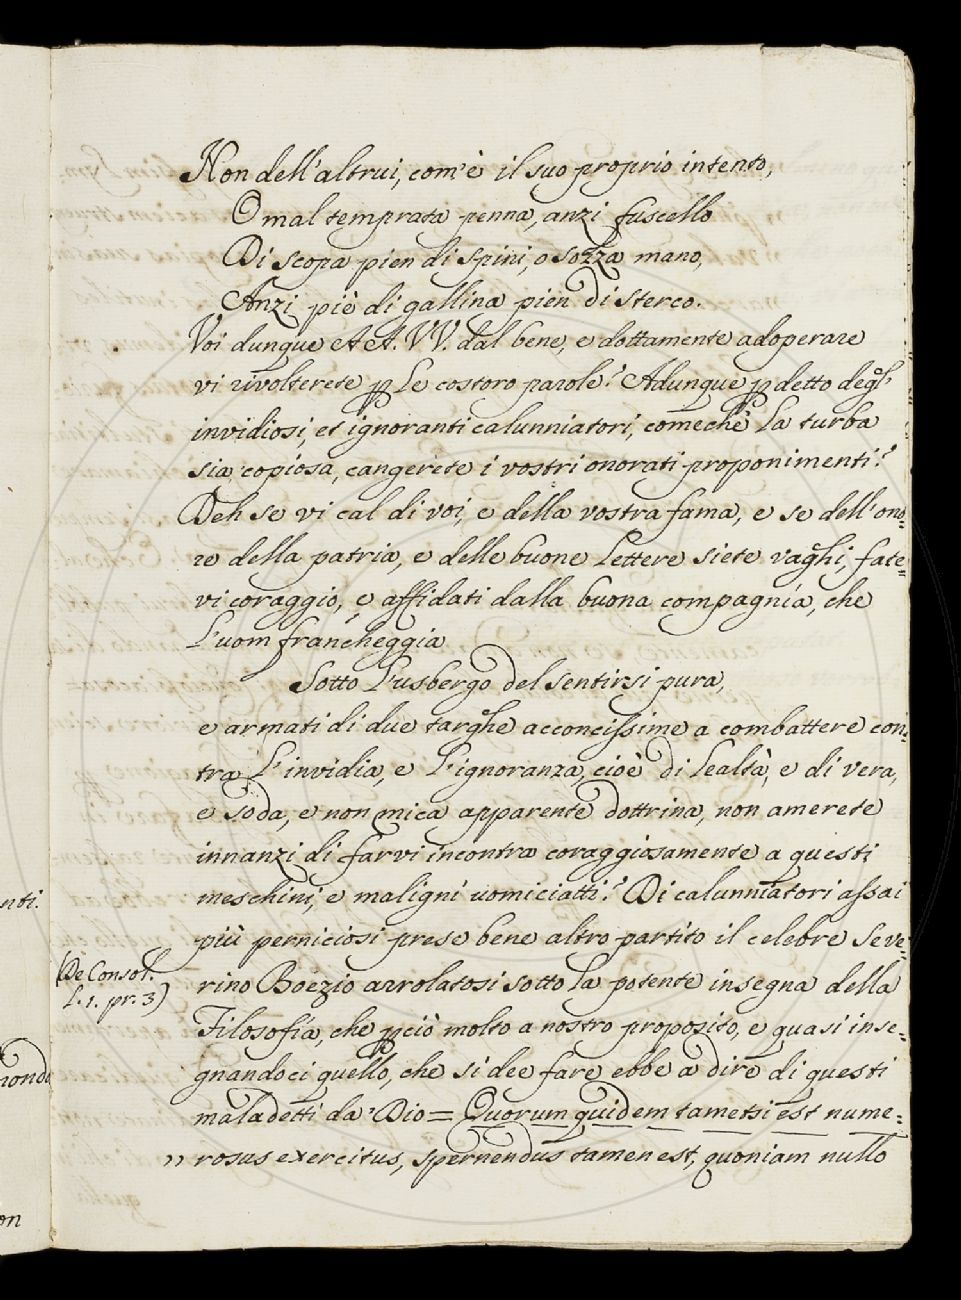 Non dell'altrui, com'è il suo proprio intento,
O mal temprata penna, anzi fuscello
Di scopa pien di spini, o sozza mano,
Anzi piè di gallina pien di sterco.
Voi dunque AA. VV. dal bene, e dottamente adoperare
vi rivolterete p le costoro parole? Adunque p detto degl'
invidiosi, et ignoranti calunniatori, comechè la turba
sia copiosa, cangerete i vostri onorati proponimenti?
Deh se vi cal di voi, e della vostra fama, e se dell'ono=
re della patria, e delle buone Lettere siete vaghi, fate=
vi coraggio, e affidati dalla buona compagnia, che
L'uom francheggia
Sotto l'usbergo del sentirsi pura,
e armati di due targhe acconcissime a combattere con=
tra l'invidia, e l'ignoranza, cioè di lealtà, e di vera,
e soda, e non mica apparente dottrina, non amerete
innanzi di farvi incontra coraggiosamente a questi
meschini, e maligni uomiciatti? Di calunniatori assai
più perniciosi prese bene altro partito il celebre Seve=
rino Boezio arrolatosi sotto la potente insegna della
(De Consol.
L. 1. pr. 3)
Filosofia, che pciò molto a nostro proposito, e quasi inse=
gnandoci quello, che si dee fare ebbe a dire di questi
maladetti da Dio = Quorum quidem tametsi est nume=
" rosus exercitus, spernendus tamen est, quoniam nullo